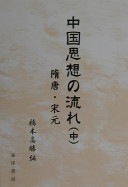 中国思想の流れ(中)
隋唐・宋元
橋本高勝編
晃洋書房